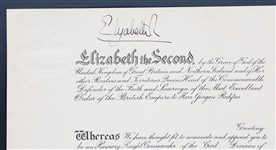 Elizabeth R
Elizabeth the Second, by the Grace of God of the
United Kingdom of Great Britain and Northern Ireland and of Her
other Realms and Territories Queen, Head of the Commonwealth,
Defender of the Faith and Sovereign of the Most Excellent
Order of the British Empire to Herr Jürgen
Greeting
Whereas We have thought fit to nominate and appoint you to
be an Honorary Knight Commander of the Civil Division of